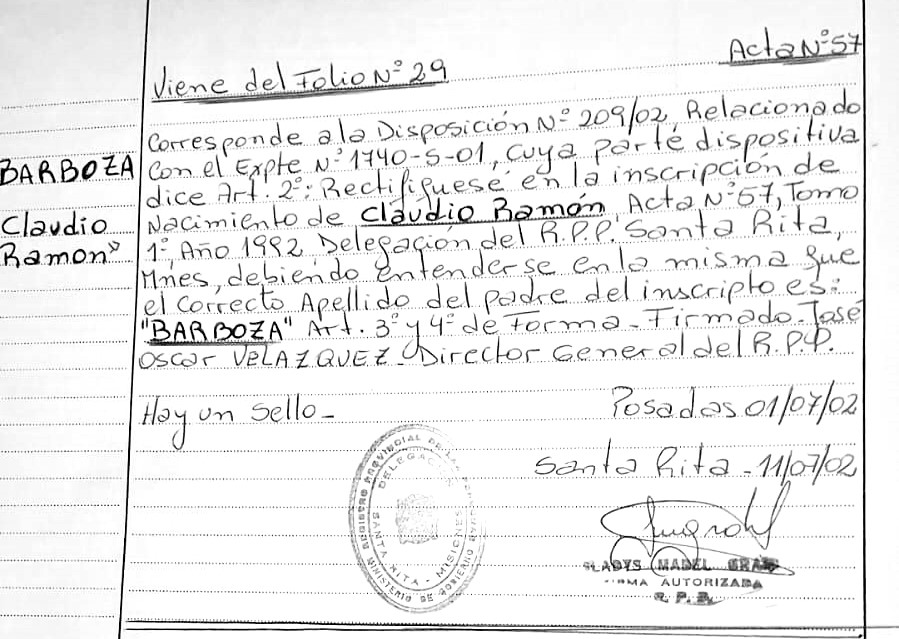 Acta N° 57
Viene del Folio N° 29
BARBOZA
Claudio
Ramon"
Corresponde a la Disposición N° 209/02, Relacionado
Con el Expte N° 1740-S-01, cuya parte dispositiva
dice Art. 2°: Rectifíquese en la inscripción de
Nacimiento de Claudio Ramón Acta N° 57, Tomo
1°, Año 1992 Delegación del R.P.P. Santa Rita,
Mnes, debiendo entenderse en la misma que
el correcto Apellido del padre del inscripto es:
"BARBOZA" Art. 3° y 4° de Forma - Firmado. José
Oscar VELAZQUEZ - Director General del R.P.P.
Hay un sello -
Posadas 01/07/02
Santa Rita - 11/07/02
REGISTRO PROVINCIAL DE LAS
DELEGACION
SANTA RITA - MISIONES
MINISTERIO DE GOBIERNO
GLADYS MABEL
FIRMA AUTORIZADA
R. P. P.